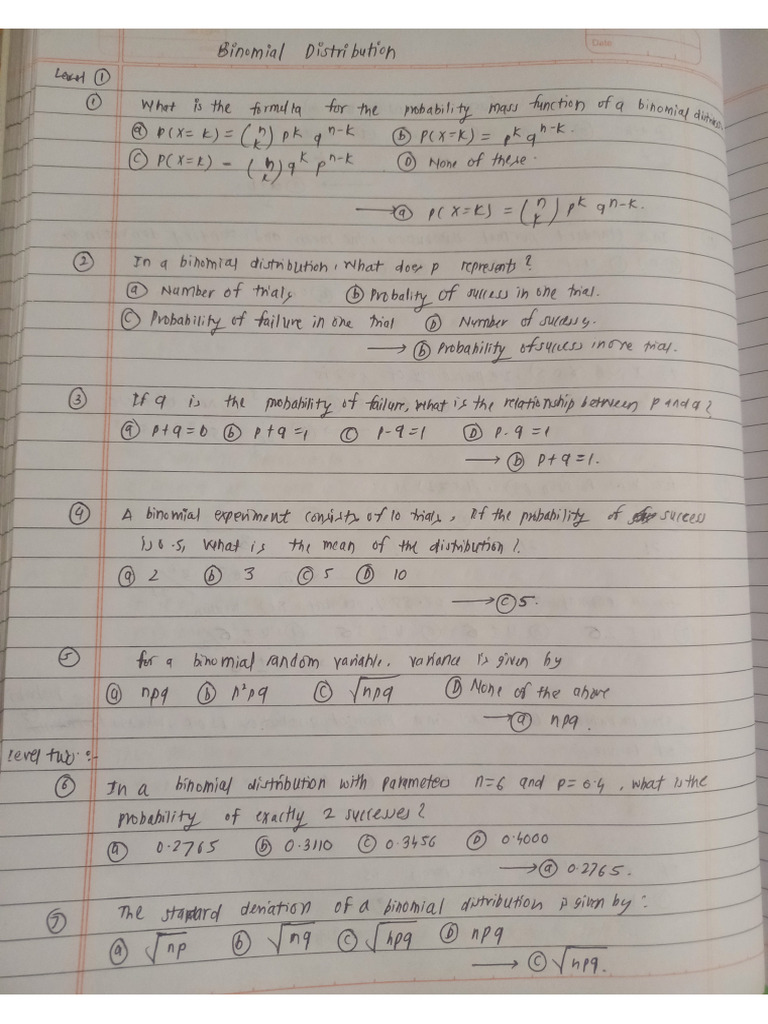 Date:
Binomial Distribution
Level ①
① What is the formulla for the probability mass function of a binomial
ⓐ P(X=K) = (n K) pK qn-K ⓑ P(X=K) = pK qn-K.
ⓒ P(X=K) - (n K) qK pn-K ⓓ None of these.
→ ⓐ P(X=K) = (n K) pK qn-K.
② In a binomial distribution, What does p represents?
ⓐ Number of trials ⓑ Probality of success in one trial.
ⓒ Probability of failure in one trial ⓓ Number of
→ ⓑ Probability of success in one trial.
③ If q is the probability of failure, what is the relationship between p and q?
ⓐ p+q=0 ⓑ p+q=1 ⓒ p-q=1 ⓓ p-q=1
→ ⓑ p+q=1.
④ A binomial experiment consists of 10 trials, If the probability of success
is 0.5, What is the mean of the distribution?
ⓐ 2 ⓑ 3 ⓒ 5 ⓓ 10
→ ⓒ 5.
⑤ for a binomial random variable. variance is given by
ⓐ npq ⓑ n²pq ⓒ √npq ⓓ None of the above
→ ⓐ npq.
Level two :-
⑥ In a binomial distribution with parameters n=6 and p=0.4, what is the
probability of exactly 2 successes?
ⓐ 0.2765 ⓑ 0.3110 ⓒ 0.3456 ⓓ 0.4000
→ ⓐ 0.2765.
⑦ The standard deviation of a binomial distribution is given by:
ⓐ √np ⓑ √nq ⓒ √npq ⓓ npq
→ ⓒ √npq.